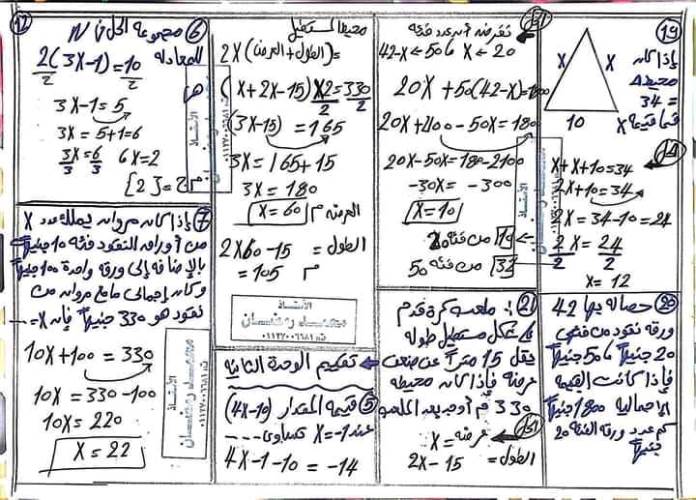 19
إذا كان
محيط Δ
= 34
فما قيمة x
X
X
10
14
X + X + 10 = 34
2X + 10 = 34
2X = 34 - 10 = 24
2X = 24
2 2
X = 12
20 حصالة بها 42
ورقة نقود من فئتي
20 جنيهاً، 50 جنيهاً
فإذا كانت القيمة
الإجمالية 1800 جنيهاً
كم عدد ورق الفئة 20
جنيهاً
نفرض أن عدد فئة
20 → X، 50 → 42-X
20X + 50(42-X) = 1800
20X - 50X = 1800 - 2100
-30X = -300
X = 10
من فئة 50 32
21 ملعب كرة قدم
على شكل مستطيل طوله
يقل 15 متراً عن ضعف
عرضه فإذا كان محيطه
330 م أوجد بعدا الملعب
عرضه = X
الطول = 2X - 15
محيط المستطيل
= 2X(الطول + العرض)
(X + 2X - 15) X2 = 330
2 2
(3X - 15) = 165
3X = 165 + 15
3X = 180
X = 60 م العرض
الطول = 2X60 - 15
= 105 م
الأستاذ
محمد رمضان
تقييم الوحدة الثانية
5 قيمة المقدار (4X-10)
عند X = -1 تساوى ----
4X-1-10 = -14
12
6 مجموعة الحل في N
للمعادلة
2(3X-1) = 10
2 2
3X - 1 = 5
3X = 5+1 = 6
3X = 6
3 3
X = 2
م.ح = {2}
7 إذا كان مروان يملك عدد X
من أوراق النقود فئة 10 جنيهاً
بالإضافة إلى ورقة واحدة 100 جنيهاً
وكان إجمالي ما مع مروان من
نقود هو 330 جنيهاً فإن X = --
10X + 100 = 330
10X = 330 - 100
10X = 220
X = 22